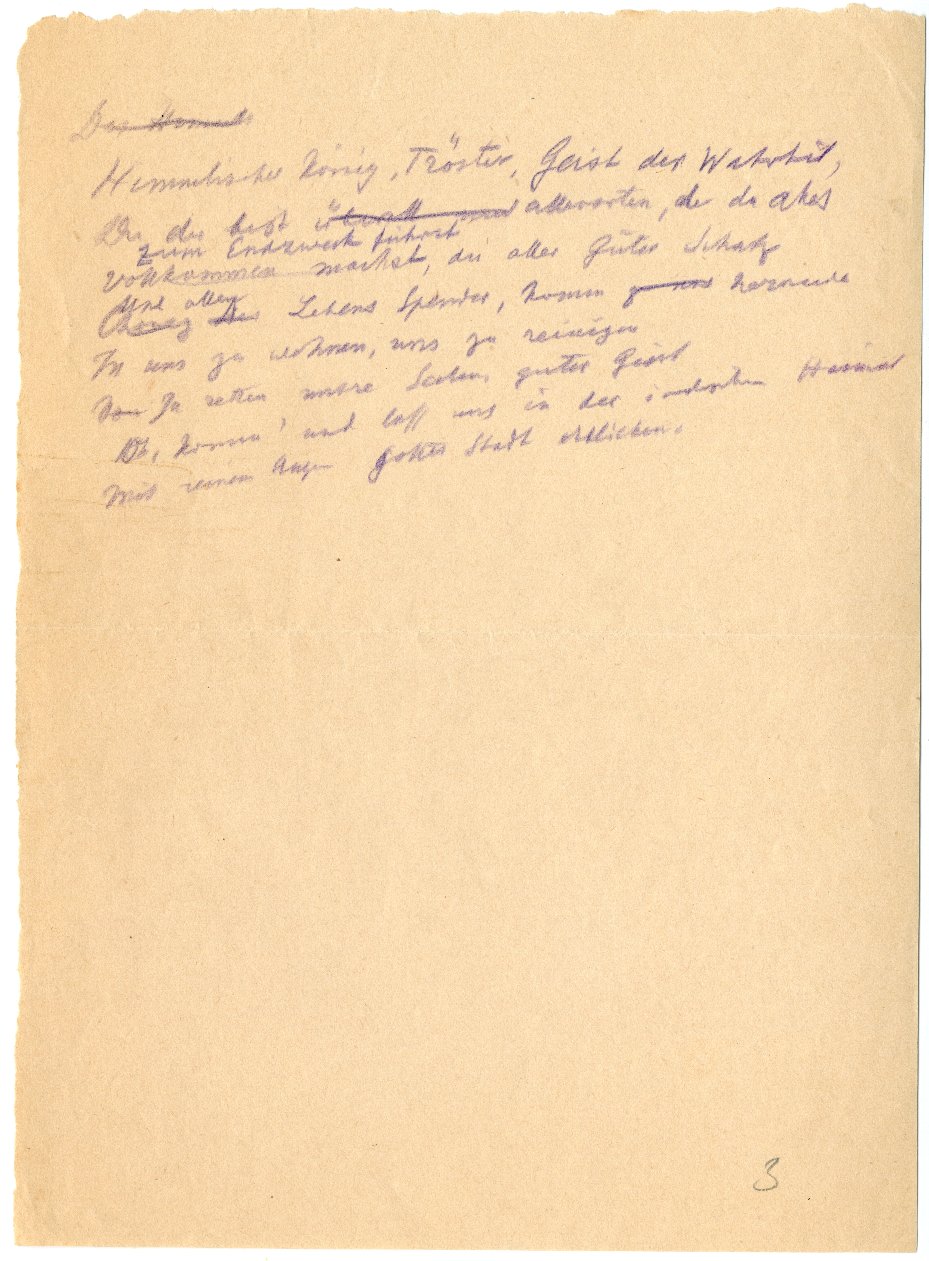 Himmlischer König, Tröster, Geist der Wahrheit,
Du der bist überall und allerorten, der du alles
zum Endzweck führst
vollkommen machst, du aller Güter Schatz
Und allen
Lebens Spender, komm hernieder
In uns zu wohnen, uns zu reinigen
Zu retten unsre Seelen, guter Geist
Oh, komm! und lass uns in der irdischen Heimat
Mit reinem Auge Gottes Stadt erblicken.
3